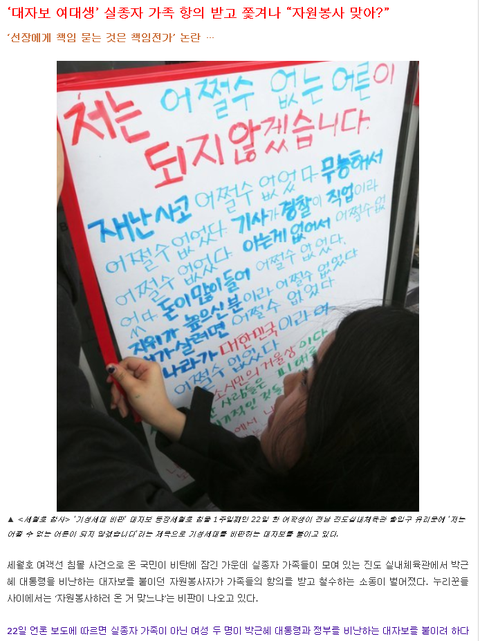 ‘대자보 여대생’ 실종자 가족 항의 받고 쫓겨나 “자원봉사 맞아?”
‘선장에게 책임 묻는 것은 책임전가’ 논란 …
저는 어쩔수 없는 어른이
되지않겠습니다.
재난사고 어쩔수 없었다 무능해서
어쩔수없었다. 기사가 경찰이 직업이라
어쩔수 없었다. 아는게 없어서 어쩔수없
었다 돈이많이들어 어쩔수 없었다.
지위가 높으신분이라 어쩔수 없었다
살려면 어쩔수 없었다
나라가 대한민국이라
어쩔수 없었다
소시민의 거울상이다
사람들은
▲ <세월호 참사> ‘기성세대 비판’ 대자보 등장세월호 침몰 1주일째인 22일 한 여학생이 전남 진도실내체육관 출입구 유리문에 ‘저는
어쩔 수 없는 어른이 되지 않겠습니다’라는 제목으로 기성세대를 비판하는 대자보를 붙이고 있다.
세월호 여객선 침몰 사건으로 온 국민이 비탄에 잠긴 가운데 실종자 가족들이 모여 있는 진도 실내체육관에서 박근
혜 대통령을 비난하는 대자보를 붙이던 자원봉사자가 가족들의 항의를 받고 철수하는 소동이 벌어졌다. 누리꾼들
사이에서는 ‘자원봉사하러 온 거 맞느냐’는 비판이 나오고 있다.
22일 언론 보도에 따르면 실종자 가족이 아닌 여성 두 명이 박근혜 대통령과 정부를 비난하는 대자보를 붙이려 하다